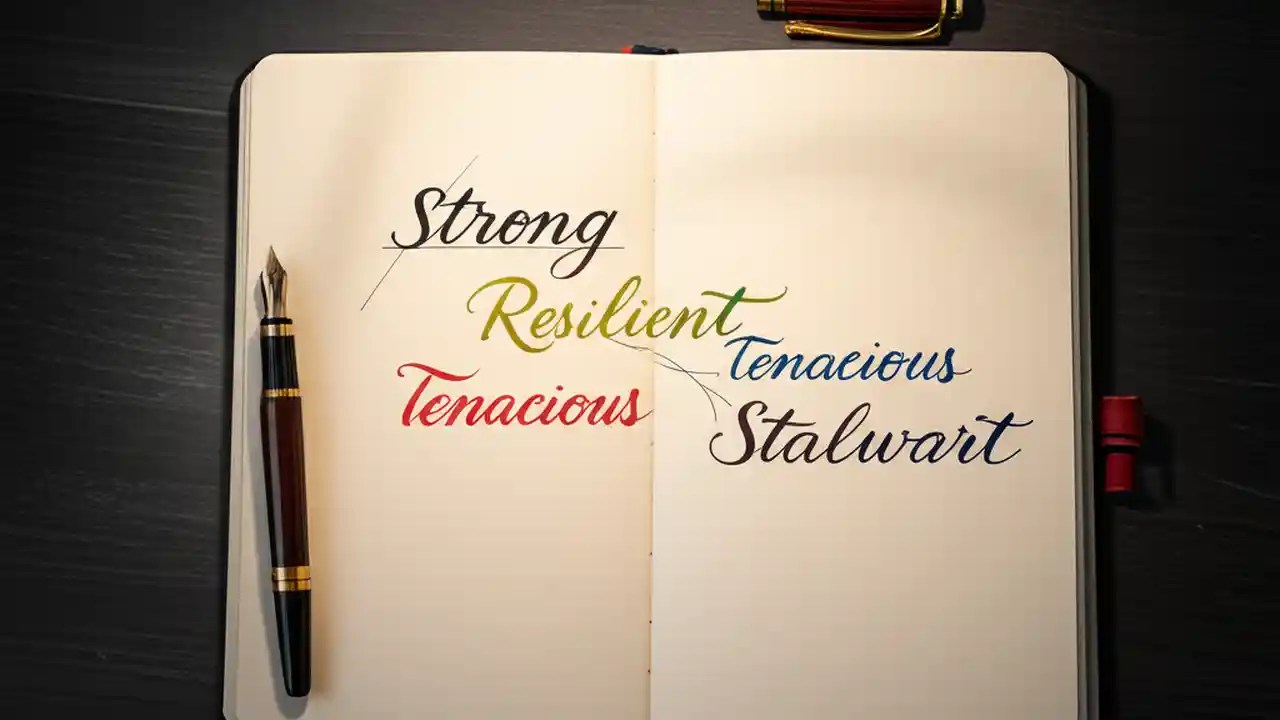 Strong
Resilient
Tenacious
Tenacious
Stalwart